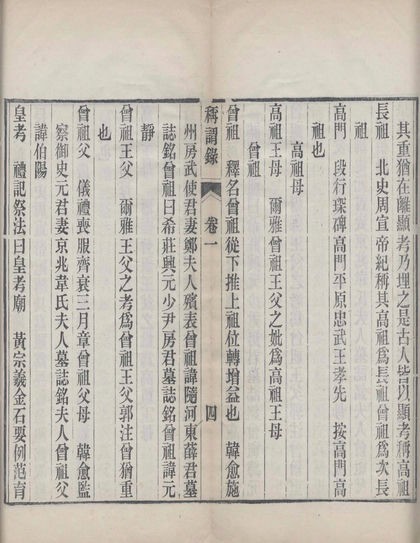 其重猶在雖顯考乃理之是古人皆以顯考稱高
長祖　北史周宣帝紀稱其高祖爲長祖曾祖爲次長
祖
高門　段行琛碑高門平原忠武王孝先　按高門高
祖也
高祖母
高祖王母　爾雅曾祖王父之妣爲高祖王母
曾祖
曾祖　釋名曾祖從下推上祖位轉增益也　韓愈施
稱謂錄　卷一　四
州房武使君妻鄭夫人殯表曾祖諱隨河東薛君墓
誌銘曾祖曰希莊興元少尹房君墓誌銘曾祖諱元
靜
曾祖王父　爾雅王父之考爲曾祖王父郭注曾猶重
也
曾祖父　儀禮喪服齊衰三月章曾祖父母　韓愈監
察御史元君妻京兆韋氏夫人墓誌銘夫人曾祖父
諱伯陽
皇考　禮記祭法曰皇考廟　黃宗羲金石要例范育